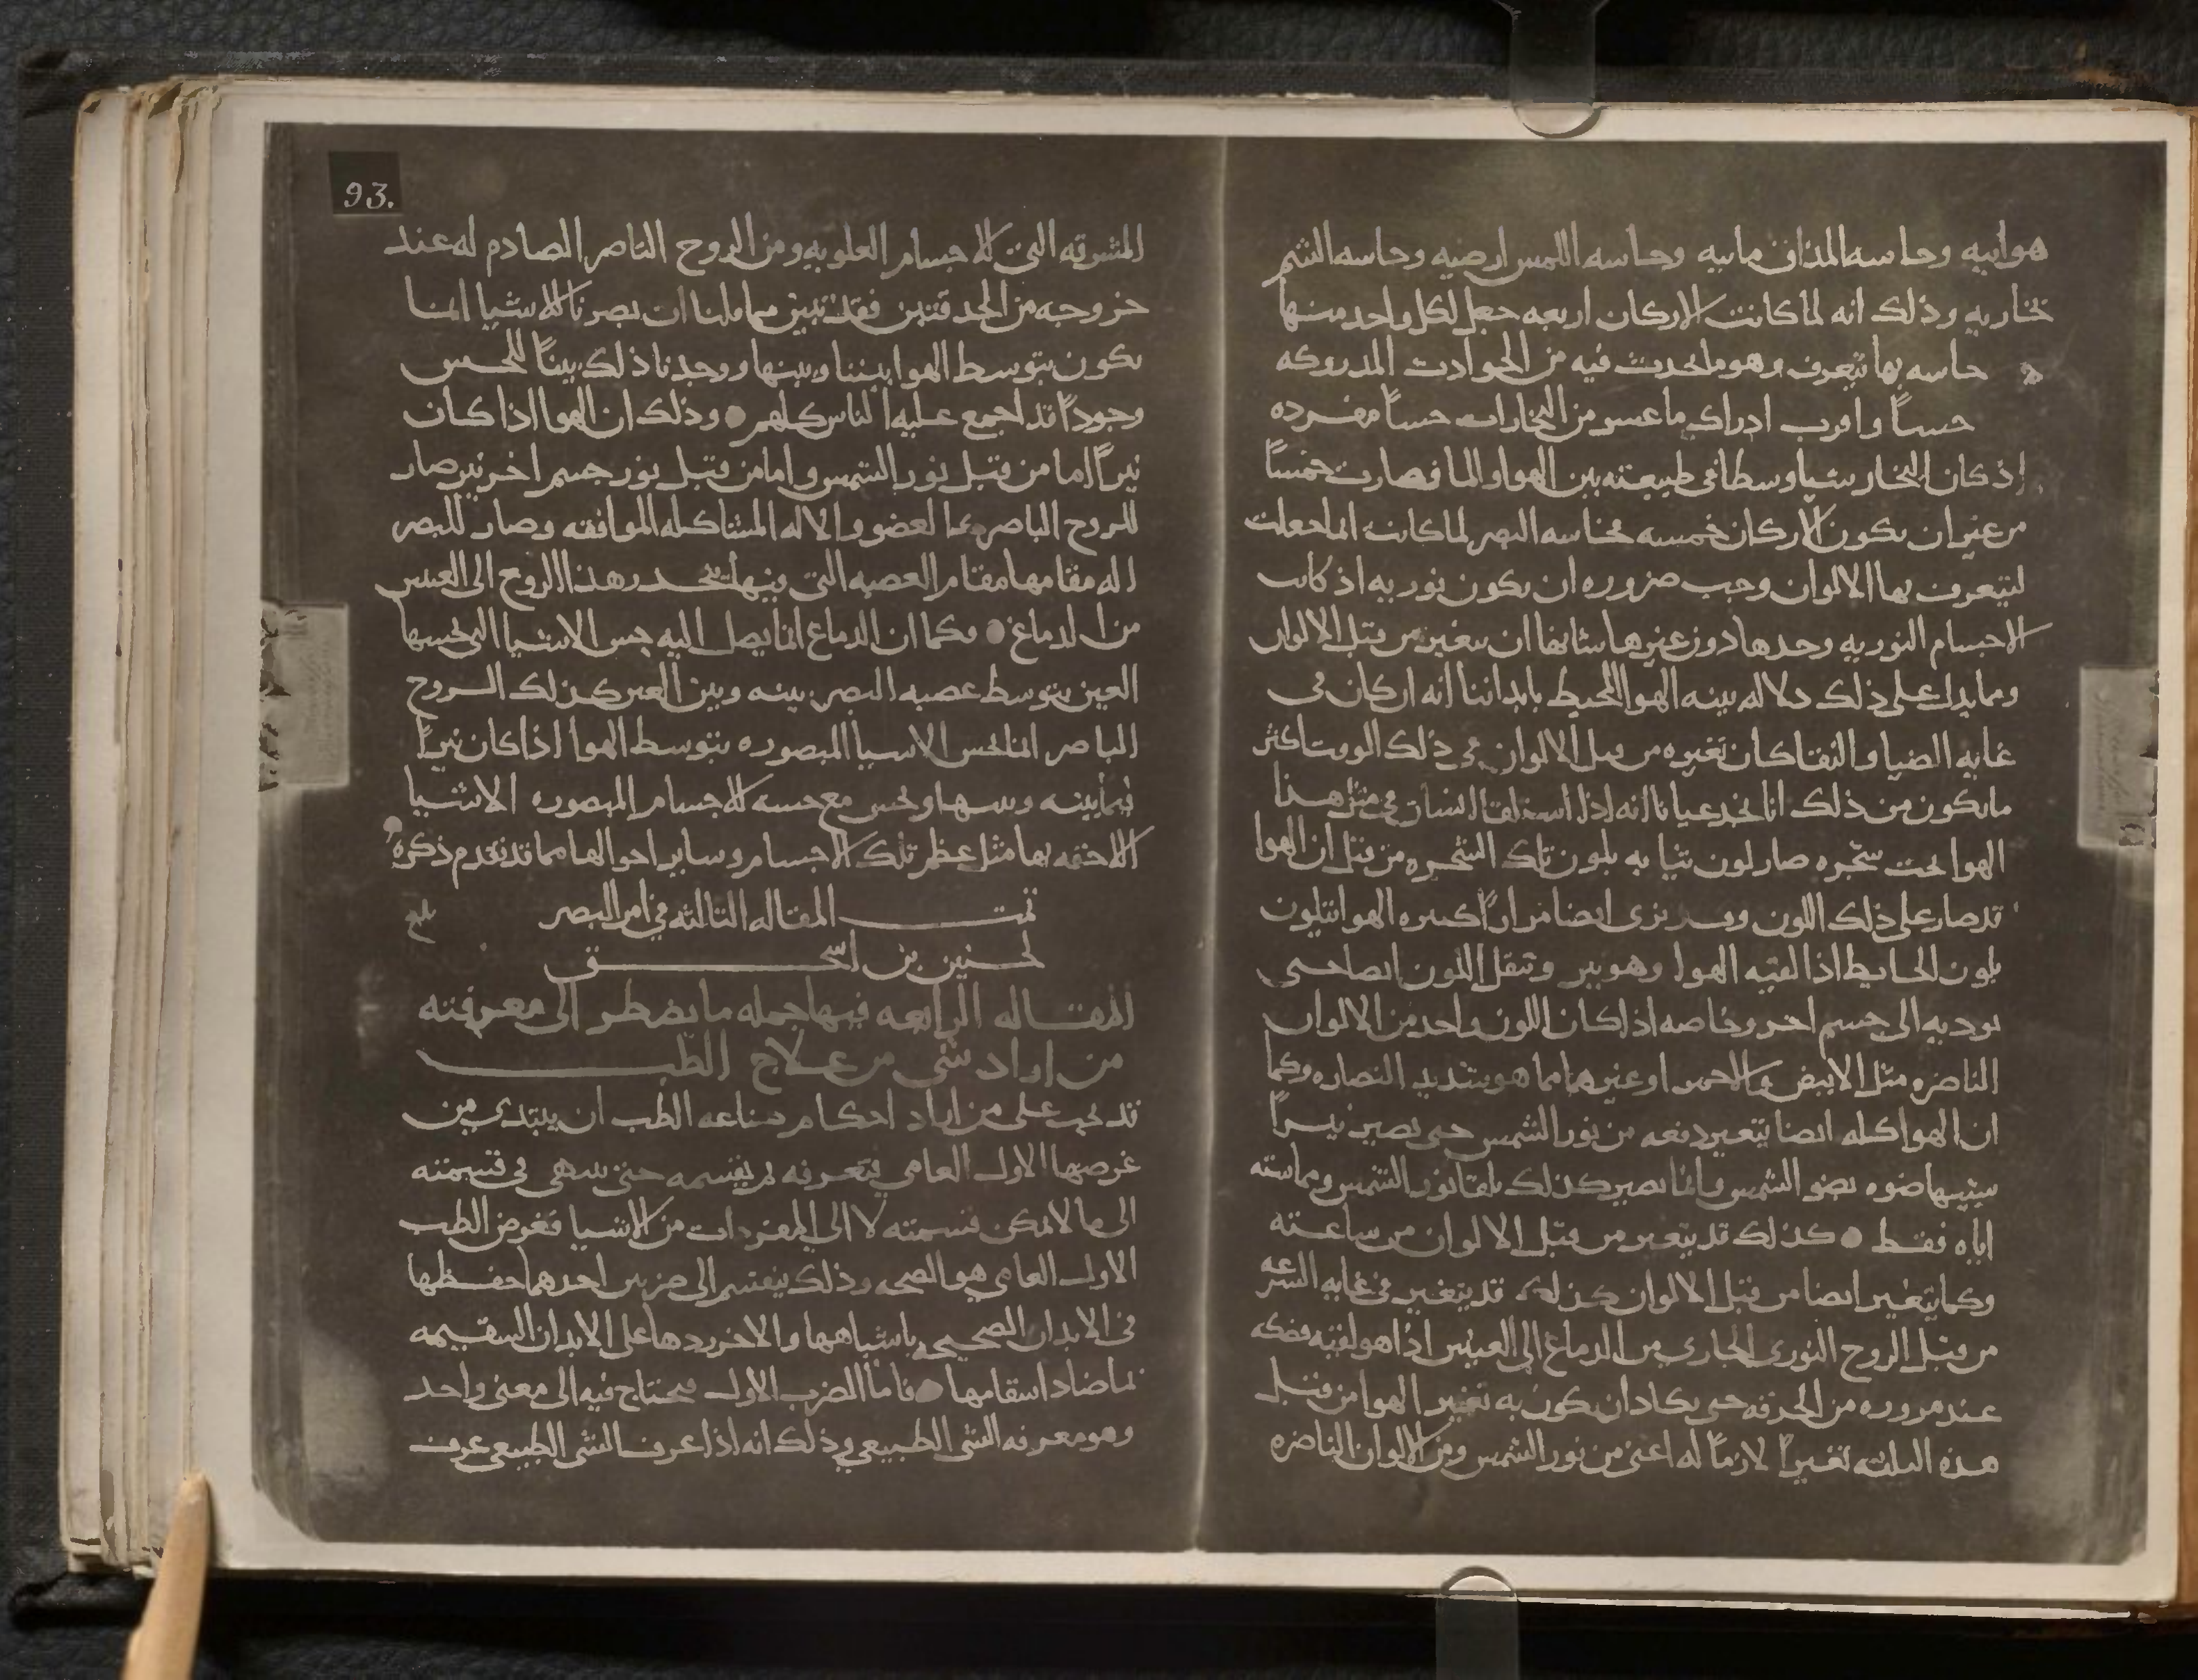 هوايه وحاسه المذاق مايه وحاسه اللمس ارضيه وحاسه الشم
بخاريه وذلك انه لما كانت الاركان اربعه جعل لكل واحد منها
حاسه بها تتعرف وهو ما يحدث فيه من الحوادث المدروكه
حساً واقرب ادراك ما عسر من البخارات حساً مفرده
اذ كان البخار شيا وسطا في طبيعته بين الهوا والما فصارت خمساً
من غير ان تكون الاركان خمسه فحاسه البصر لما كانت انما جعلت
لنتعرف بها الالوان وجب ضروره ان تكون نوريه اذ كانت
الاجسام النوريه وحدها دون غيرها شانها ان تتغير من قبل الالوان
ومما يدل على ذلك دلاله بينه الهوا المحيط بابداننا انه اذ كان في
غايه الضيا والنقا كان تغيره من قبل الالوان في ذلك الوقت اكثر
ما يكون من ذلك انا نجد عيانا انه اذا استلقا انسان في مثل هذا
الهوا تحت شجره صار لون ثيابه بلون تلك الشجره من قبل ان الهوا
قد صار على ذلك اللون وقد نرى ايضا مراراً كثيره الهوا يتلون
بلون الحايط اذا لقيه الهوا وهو نير وتنقل اللون ايضا حتى
توديه الى جسم اخر وخاصه اذا كان اللون واحد من الالوان
الناضره مثل الابيض والاحمر او غيرهما مما هو شديد النضاره وكما
ان الهوا كله ايضا يتغير دفعه من نور الشمس حتى يصير نيراً
شبيها ضوه بضو الشمس وانما يصير كذلك بلقا نور الشمس ومماسته
اياه فقط كذلك قد يتغير من قبل الالوان من ساعته
وكما يتغير ايضا من قبل الالوان كذلك قد يتغير في غايه السرعه
من قبل الروح النوري الجاري من الدماغ الى العينين اذا هو لقيه فصكه
عند مروره من الحدقه حتى يكاد ان يكون به تغير الهوا من قبل
هذه الثلثه تغييراً لازماً له اعني من نور الشمس ومن الالوان الناضره
93.
المشرقه التي للاجسام العلويه ومن الروح الناصر الصادم له عند
خروجه من الحدقتين فقد تبين مما قلنا ان بصرنا للاشيا انما
يكون بتوسط الهوا بيننا وبينها ووجدنا ذلك بيناً للحس
وجوداً قد اجمع عليه الناس كلهم وذلك ان الهوا اذا كان
نيراً اما من قبل نور الشمس واما من قبل نور جسم اخر نير صار
للروح الباصر بما لعضو والاله المشاكله الموافقه وصار للبصر
اله مقامها مقام العصبه التي فيها ينحدر هذا الروح الى العينين
من الدماغ وكما ان الدماغ انما يصل اليه حس الاشيا التي تحسها
العين بتوسط عصبه البصر بينه وبين العين كذلك الروح
الباصر انما تحس الاشيا المبصوره بتوسط الهوا اذا كان نيراً
فيما بينه وبينها وتحس مع حسه للاجسام المبصوره الاشيا
اللاحقه بها مثل عظم تلك الاجسام وساير احوالها مما قد تقدم ذكره
تمت المقاله الثالثه في امر البصر
بلغ
لحنين بن اسحق
المقاله الرابعه فيها جمله ما يضطر الى معرفته
من اراد شي من علاج الطب
قد يجب على من اراد احكام صناعه الطب ان يبتدي من
غرضها الاول العامي فيتعرفه ثم يقسمه حتى ينتهي في قسمته
الى ما لا يمكن قسمته لا الى المفردات من الاشيا فغرض الطب
الاول العامي هو الصحه وذلك ينقسم الى ضربين احدهما حفظها
في الابدان الصحيحه باشباهها والاخر ردها على الابدان السقيمه
بما ضاد اسقامها فاما الضرب الاول فيحتاج فيه الى معنى واحد
وهو معرفه الشي الطبيعي وذلك انه اذا عرف الشي الطبيعي عرف